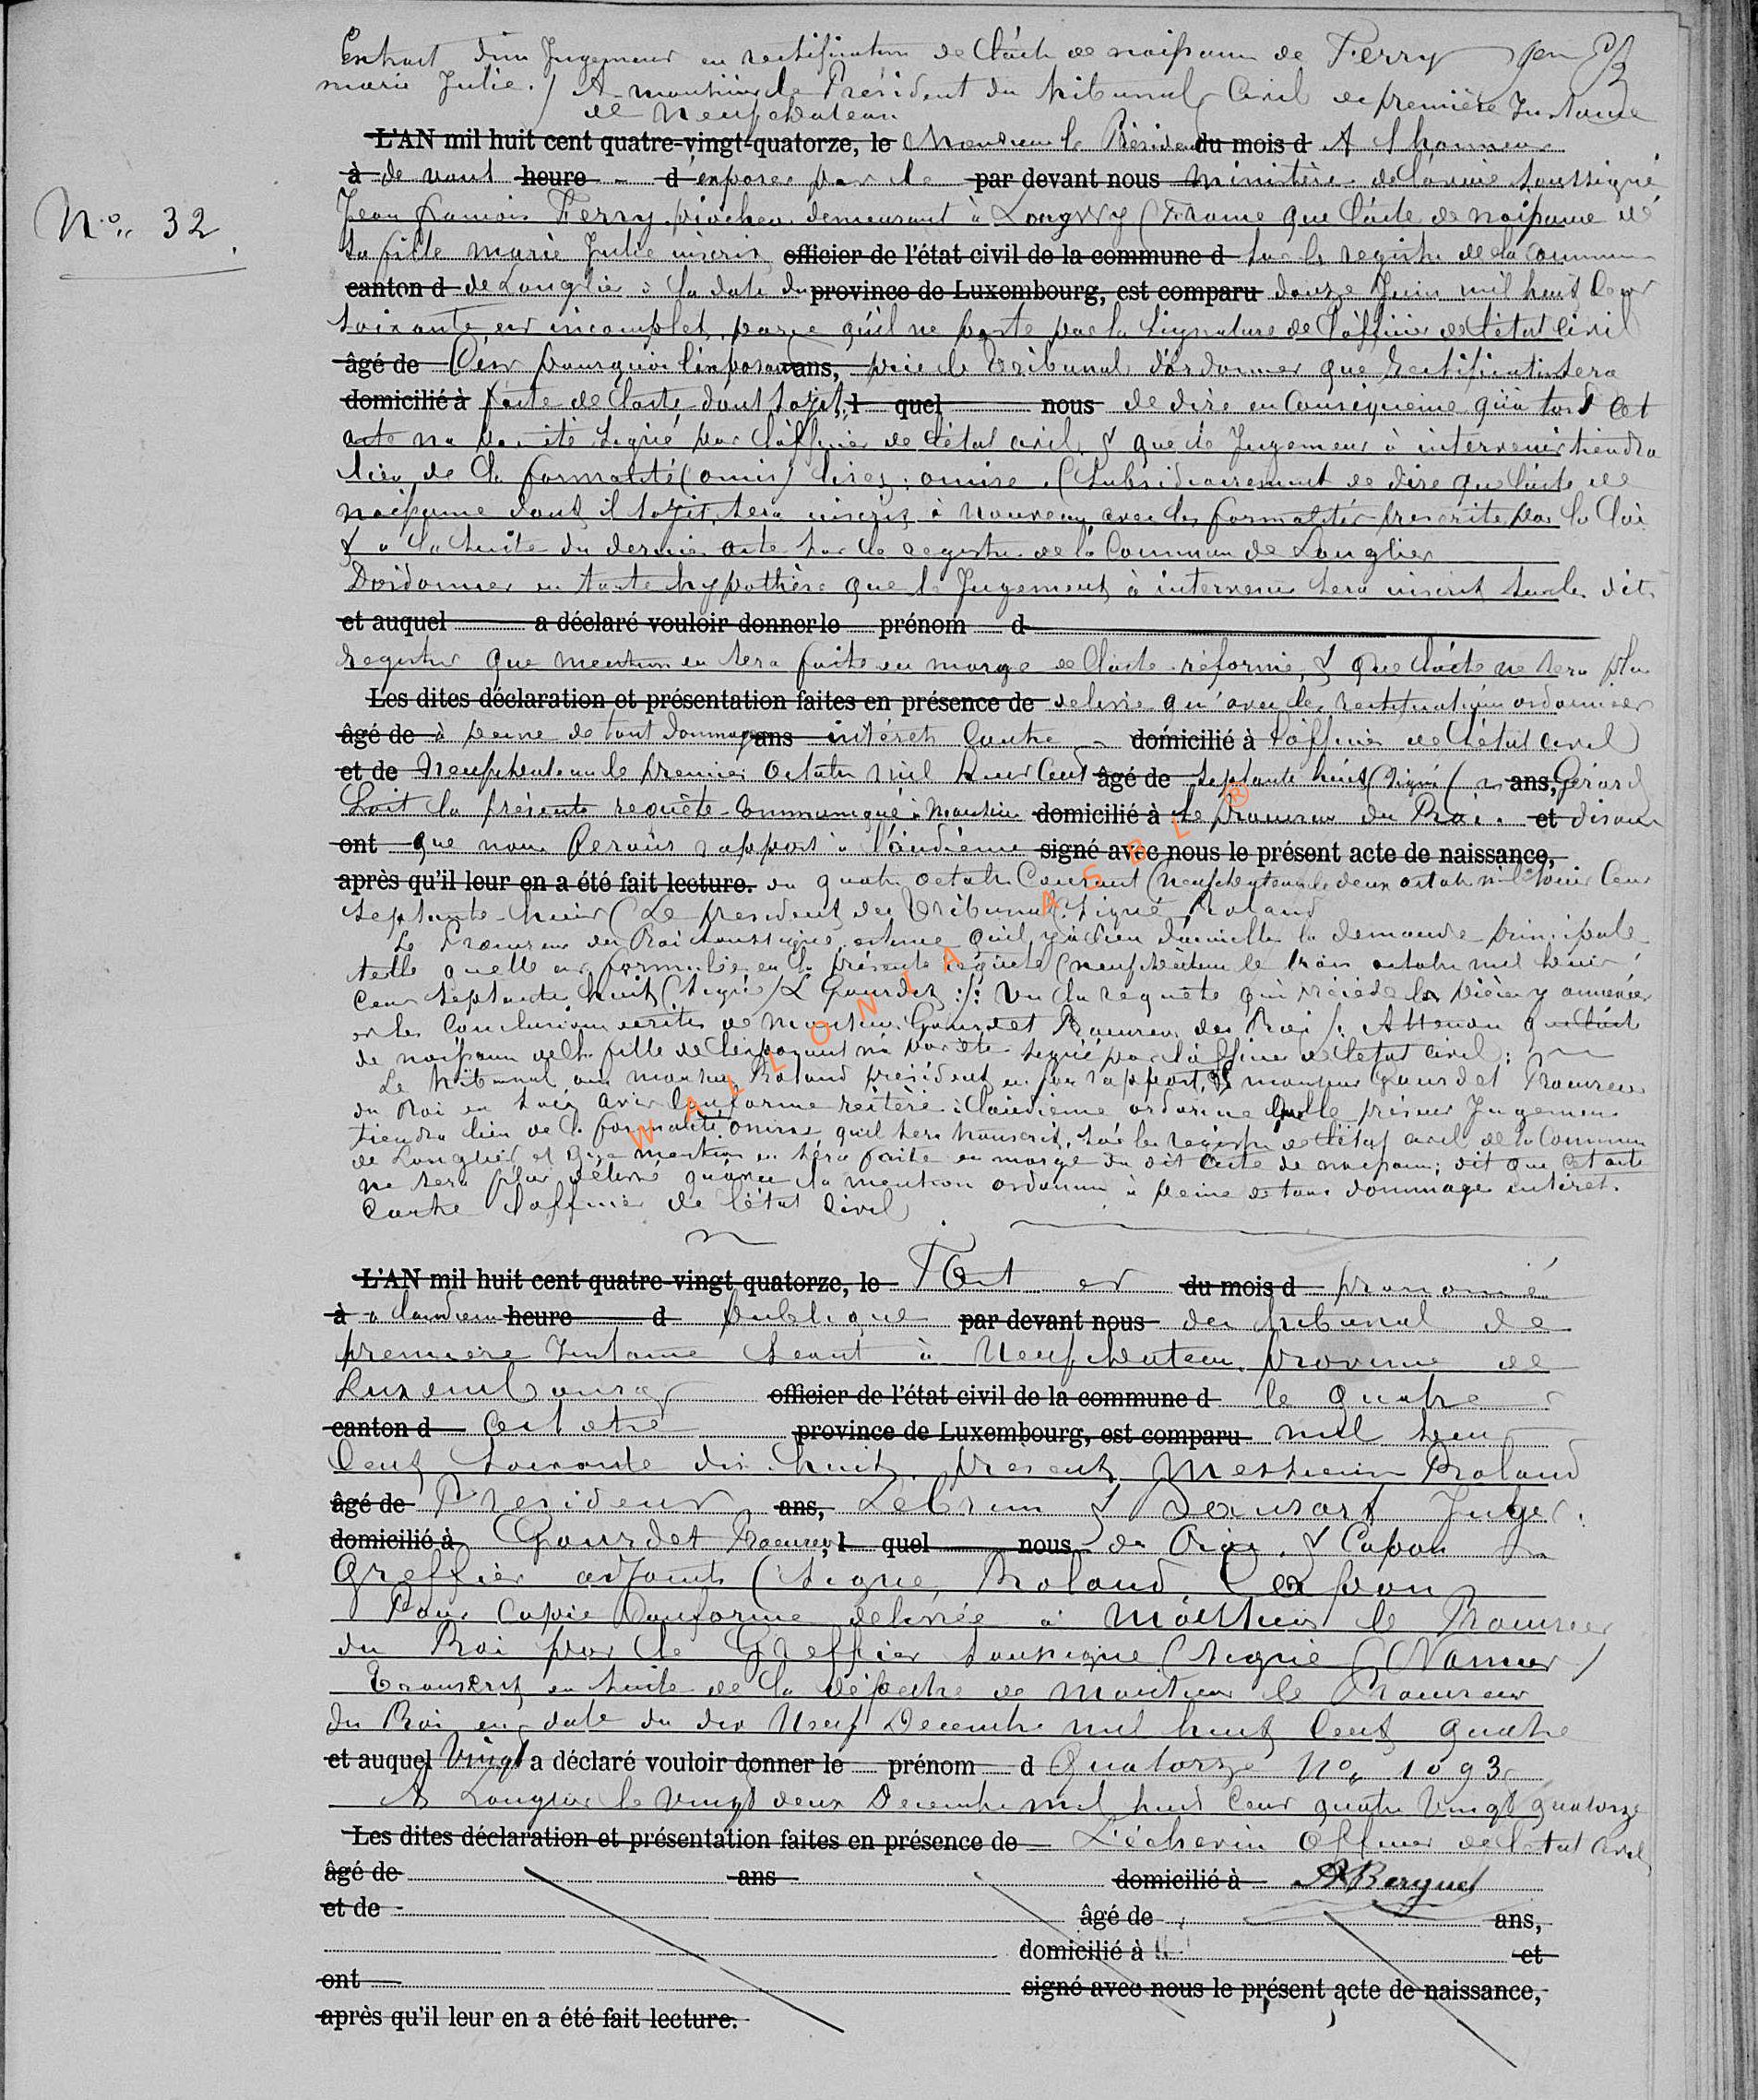 Extrait d'un Jugement en rectification de l'acte de naissance de Ferry
marie Julie. / A monsieur le Président du tribunal Civil de première Instance
de Neufchateau
L'AN mil huit cent quatre-vingt-quatorze, le Monsieur le Président du mois d A l honneur
à de vant heure d'exposer par le par devant nous ministère de l'avoué soussigné
N° 32
Jean francois Ferry piocheur demeurant à Longwy (France que l'acte de naissance de
sa fille marie Julie inscrit officier de l'état civil de la commune d sur le registre de la commune
canton d de Longlier à la date du province de Luxembourg, est comparu douze Juin mil huit Cent
soixante est incomplet, parce qu'il ne porte pas la signature de l'officier de l'état civil
âgé de C'est pourquoi l'exposant ans, prie le Tribunal d'ordonner que rectification sera
domicilié à faite de l'acte dont s'agit, l quel nous de dire en Conséquence qu'à tord cet
acte n'a pas été signé par l'officier de l'état civil & que le Jugement à intervenir tiendra
lieu de la formalité (omis) lisez: omise. (Subsidiairement de dire que l'acte de
naissance dont il s'agit, sera inscrit à nouveau avec les formalités prescrite par la loi
& à la suite du dernier acte sur le registre de la Commune de Longlier
D'ordonner en toute hypothèse que le Jugement à intervenir sera inscrit sur les dits
et auquel a déclaré vouloir donner le prénom d
registres que mention en sera faite en marge de l'acte réformé, & que l'acte ne sera plus
Les dites déclaration et présentation faites en présence de delivré qu'avec les rectifications ordonnées
âgé de à peine de tout dommage ans intérêts Contre domicilié à l'officier de l'état civil
et de Neufchateau le premier Octobre mil huit Cent âgé de septante huit (signé) ans, Gérard
Soit la présente requête Communiqué à Monsieur domicilié à le procureur du Roi. et disons
ont que nous ferons rapport à l'audience signé avec nous le présent acte de naissance,
après qu'il leur en a été fait lecture. du quatre octobre Courant (Neufchateau le deux octobre mil huit Cent
septante-huit (Le president du Tribunal, signé Roland
Le Procureur du Roi soussigné, estime qu'il y a lieu d'accueillir la demande principale
telle quelle est formulée en la présente requête (neufchâteau le trois octobre mil huit
Cent septante huit (signé) Gourdet :/: Vu la requête qui précède les pièces y annexées
et les Conclusions écrites de monsieur Gourdet Procureur du Roi /. Attendu que l'acte
de naissance de la fille de l'exposant n'a pas été signé par l'officier de l'état civil;
Le tribunal ouï monsieur Roland président en son rapport, & monsieur Gourdet Procureur
du Roi en son avis Conforme réitéré à l'audience ordonne que le présent Jugement
tiendra lieu de la formalité omise qu'il sera transcrit, sur les registre de l'état civil de la Commune
de Longlier et que mention en sera faite en marge du dit acte de naissance; dit que cet acte
ne sera plus délivré qu'avec la mention ordonnée à peine de tous dommage intéret.
Contre l'officier de l'état Civil
L'AN mil huit cent quatre-vingt quatorze, le Fait et du mois d prononcé
à à l'audience heure d publique par devant nous du tribunal de
première Instance séant à Neufchateau province de
Luxembourg officier de l'état civil de la commune d le quatre
canton d Octobre province de Luxembourg, est comparu mil huit
Cent soixante dix huit, présents Messieurs Roland
âgé de Président ans, Lebrun & Juges.
domicilié à Gourdet Procureur, l quel nous du Roi. & Capon
Greffier adjoint (signé, Roland, Capon
Pour Copie Conforme délivrée à Monsieur le Procureur
du Roi par le Greffier soussigné (signé) (Namur)
Transcrit en suite de la dépêche de Monsieur le Procureur
du Roi en date du dix Neuf Decembre mil huit Cent quatre
et auquel Vingt a déclaré vouloir donner le prénom d Quatorze N° 1093
A Longlier le vingt deux Decembre mil huit Cent quatre Vingt quatorze
Les dites déclaration et présentation faites en présence de L'échevin Officier de l'état Civil
âgé de ans domicilié à
et de âgé de ans,
domicilié à et
ont signé avec nous le présent acte de naissance,
après qu'il leur en a été fait lecture.
WALLONIA ASBL ®